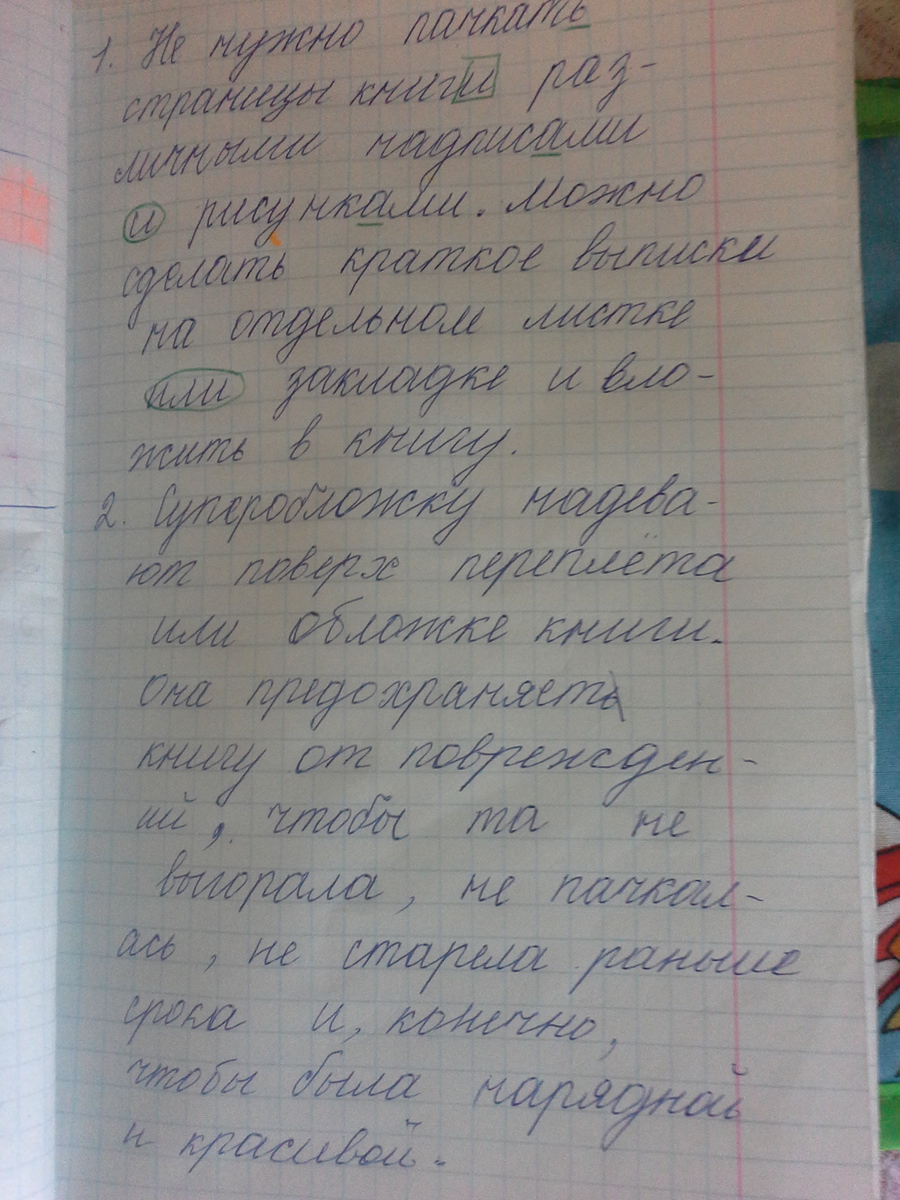 1. Не нужно пачкать
страницы книги раз-
личными надписами
и рисунками. Можно
сделать краткое выписки
на отдельном листке
или закладке и вло-
жить в книгу.
2. Суперобложку надева-
ют поверх переплёта
или обложке книги.
Она предохраняеть
книгу от поврежден-
ий, чтобы та не
выгорала, не пачкал-
ась, не старела раньше
срока и, конечно,
чтобы была нарядной
и красивой.